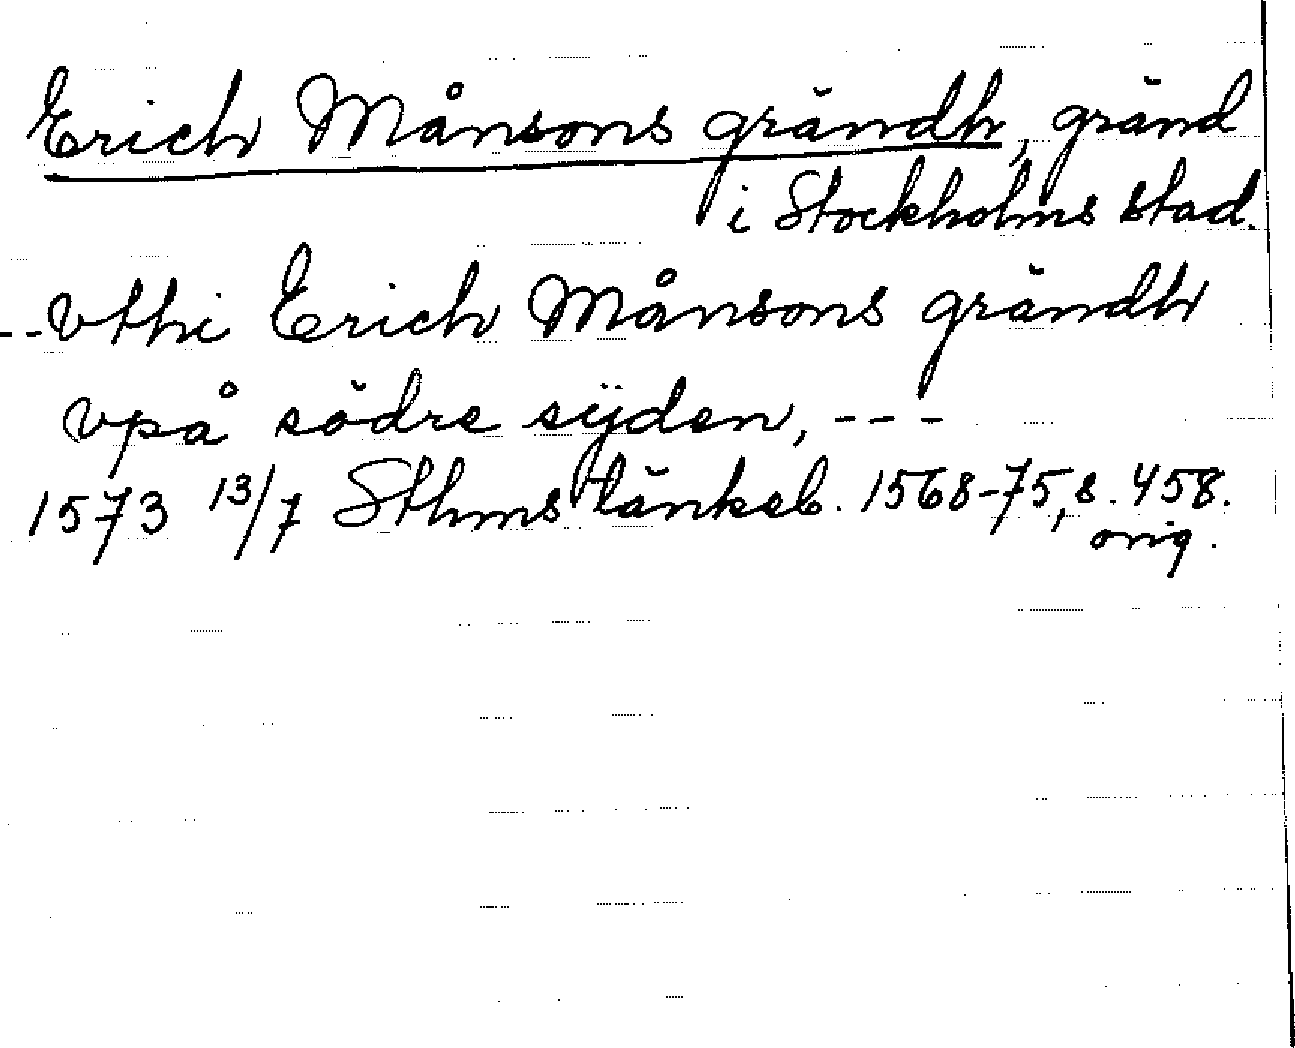 Erich Månsons grändh, gränd
i Stockholms stad.
--vthi Erich Månsons grändh
vpå södre sÿden, ---
1573 13/7 Sthms tänkeb. 1568-75, s. 458.
orig.